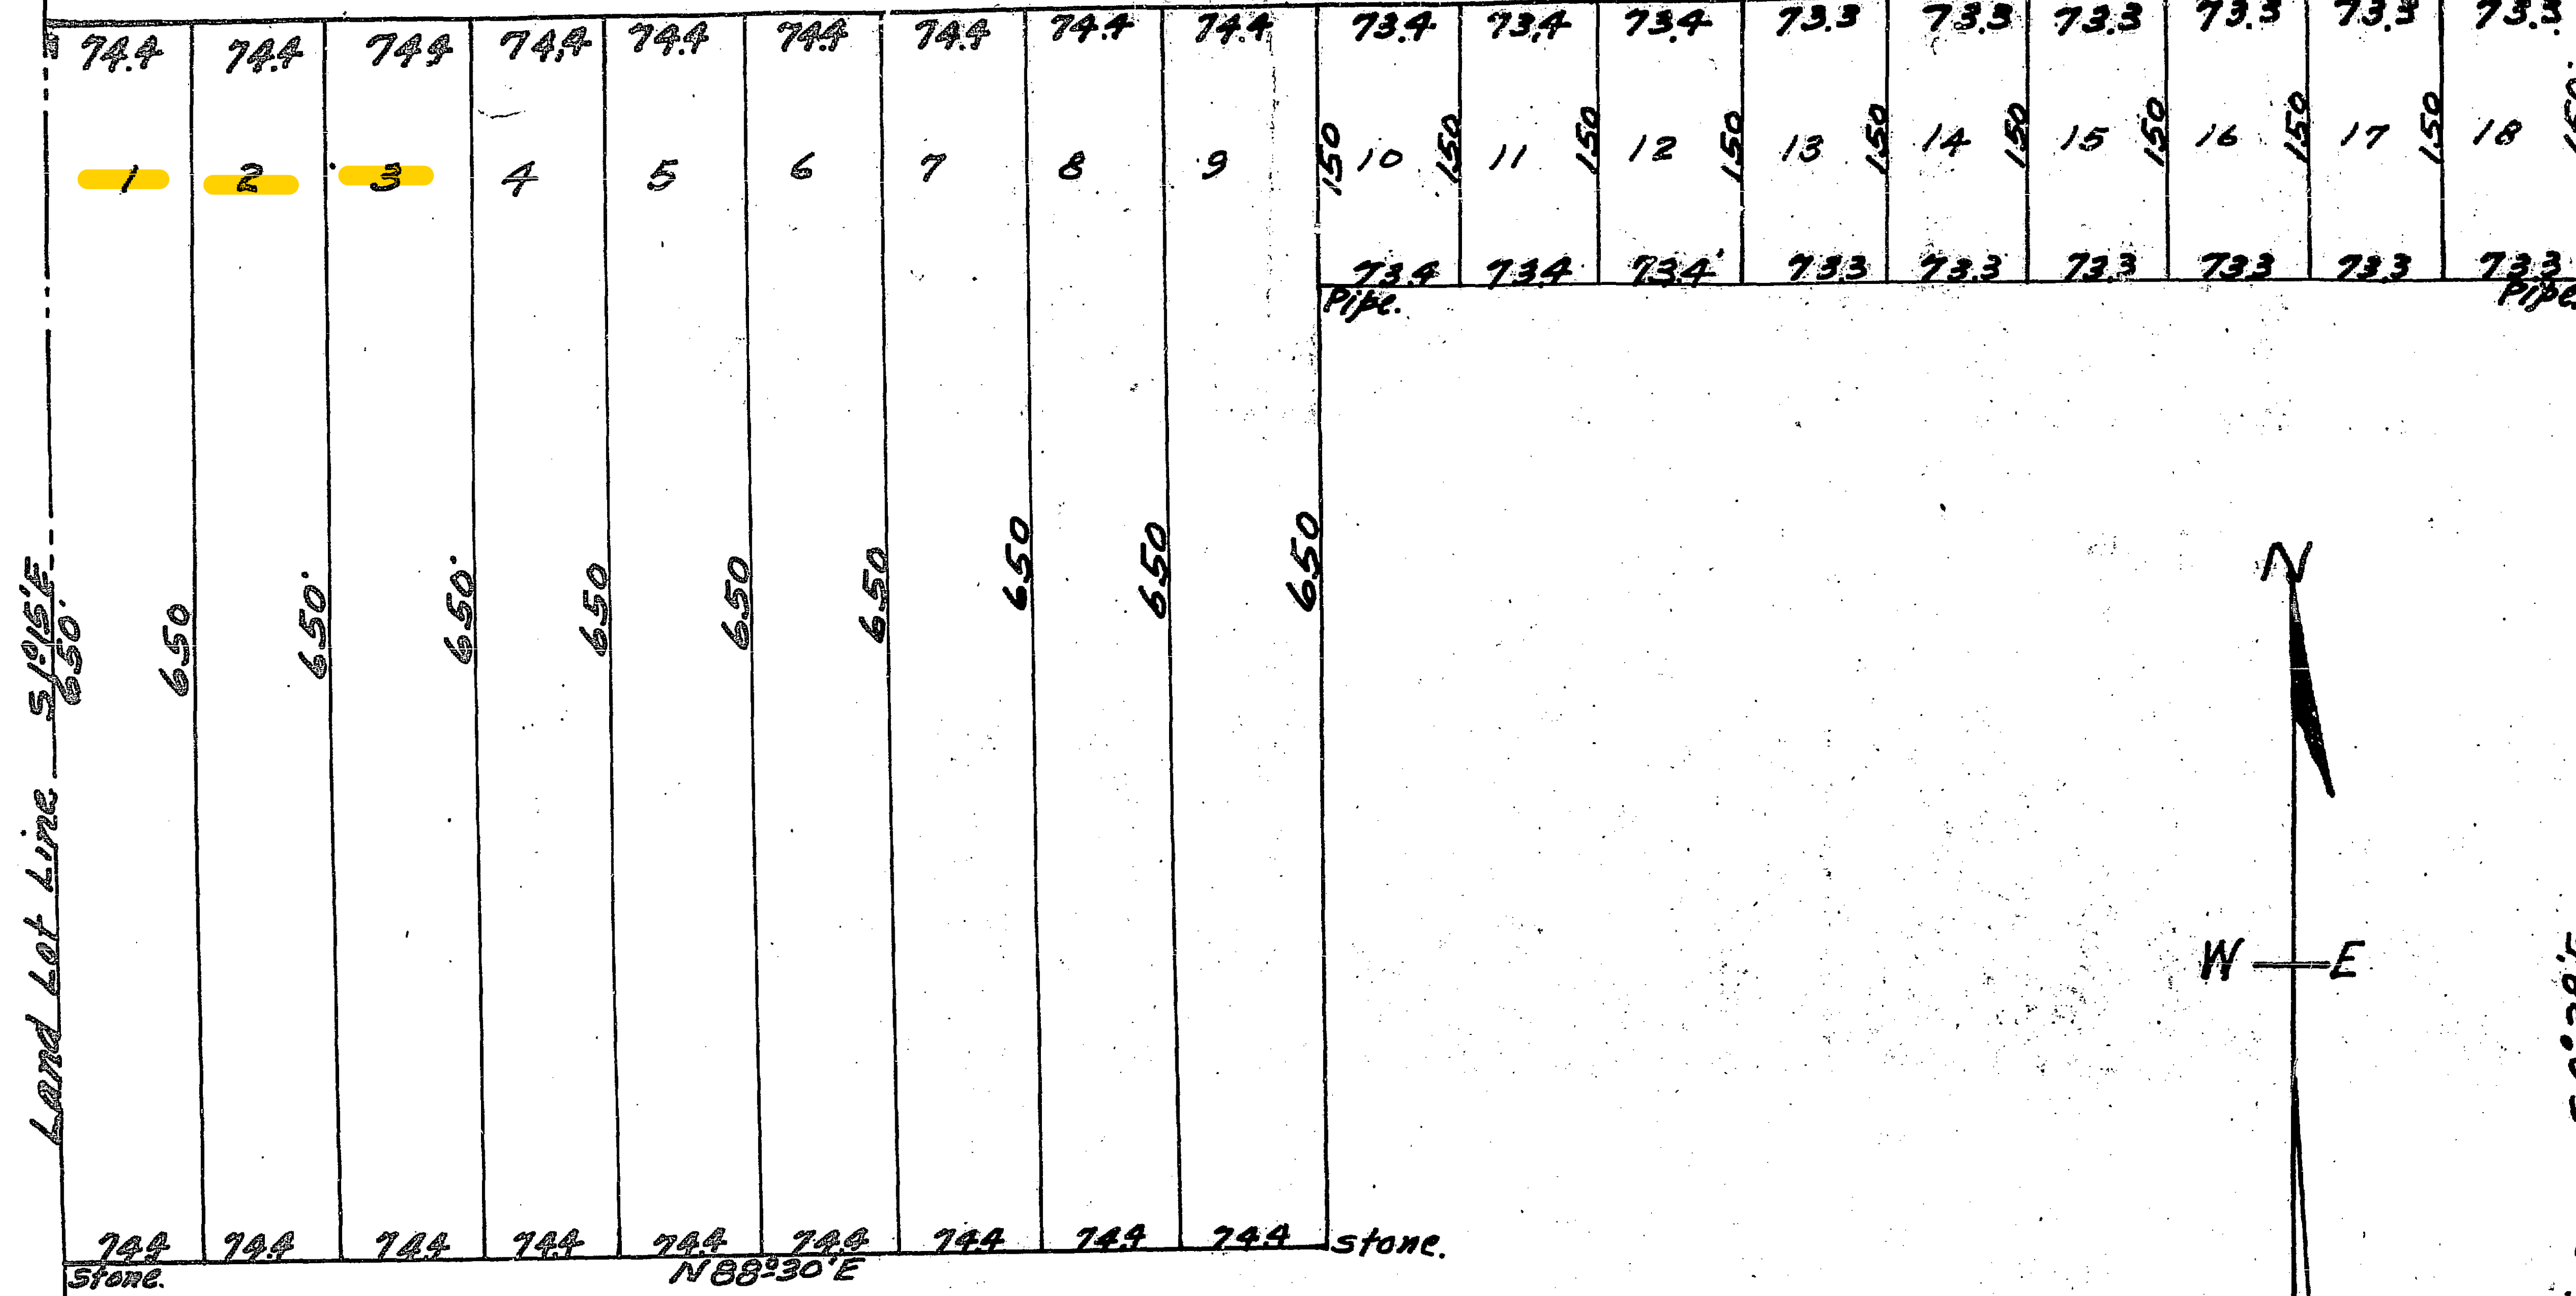 74.4 74.4 74.4 74.4 74.4 74.4 74.4 74.4 74.4 73.4 73.4 73.4 73.3 73.3 73.3 73.3 73.3 73.3
1 2 3 4 5 6 7 8 9 150 10 150 11 150 12 150 13 150 14 150 15 150 16 150 17 150 18 150
73.4 73.4 73.4' 73.3 73.3 73.3 73.3 73.3 73.3
Pipe. Pipe.
Land Lot Line S1°15'E
650' 650 650' 650' 650 650 650 650 650 650
N
W E
74.4 74.4 74.4 74.4 74.4 74.4 74.4 74.4 74.4 Stone.
Stone. N88°30'E